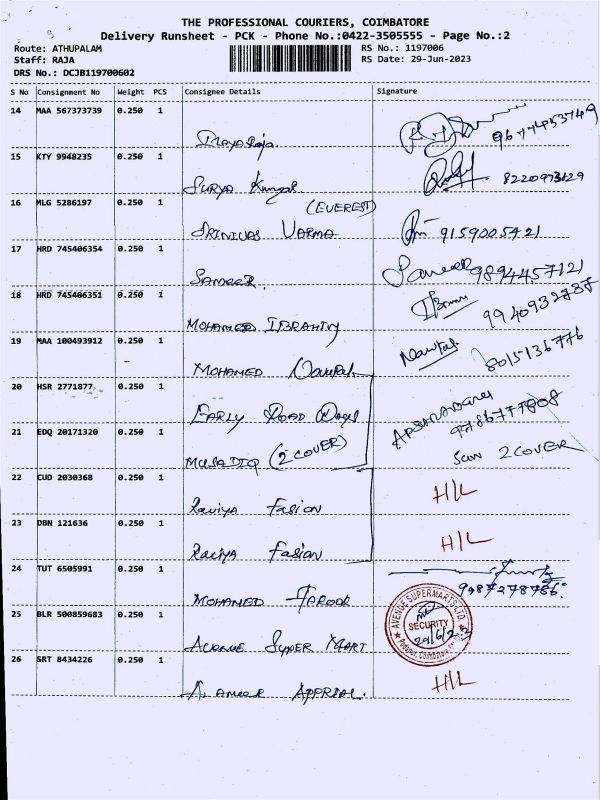 THE PROFESSIONAL COURIERS, COIMBATORE
Delivery Runsheet - PCK - Phone No.:0422-3505555 - Page No.:2
Route: ATHUPALAM RS No.: 1197006
Staff: RAJA RS Date: 29-Jun-2023
DRS No.: DCJB119700602
S No Consignment No Weight PCS Consignee Details Signature
14 MAA 567373739 0.250 1
15 KTY 9948235 0.250 1
SURYA Kumar 8220973129
16 MLG 5286197 0.250 1 (EVEREST)
SRINIVAS VARMA 9159005921
17 HRD 745406354 0.250 1
SAMEER. Sameer 9894457121
18 HRD 745406351 0.250 1
MOHAMED IBRAHIM 9940932787
19 MAA 100493912 0.250 1
MOHAMED Naufal Naufal 8015136776
20 HSR 2771877 0.250 1
EARLY ROAD Days
21 EDQ 20171320 0.250 1
MUSADIQ (2 COVER) 2 COVER
22 CUD 2030368 0.250 1
Raviya Fasion H/L
23 DBN 121636 0.250 1
Raviya Fasion H/L
24 TUT 6505991 0.250 1
MOHAMED FAROOK 9987278786.
25 BLR 500859683 0.250 1
AVENUE SUPERMARTS LTD.
SECURITY
29/6/23
AVENUE SUPER MART
26 SRT 8434226 0.250 1
A. AMEER APPERIAL. H/L